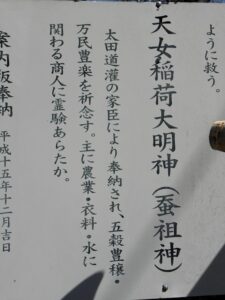 ように救う。
天女稲荷大明神（蚕祖神）
太田道灌の家臣により奉納され、五穀豊穣・
万民豊楽を祈念す。主に農業・衣料・水に
関わる商人に霊験あらたか。
案内板奉納　平成十五年十二月吉日